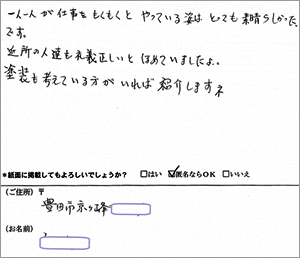 一人一人が仕事をもくもくと やっている姿は とっても 素晴らしかった
です。
近所の人達も礼義正しいと ほめていましたよ。
塗装も考えている方が いれば 紹介しますネ
*紙面に掲載してもよろしいでしょうか？ □はい ☑匿名ならOK □いいえ
(ご住所) 〒
豊田市京ヶ峰
(お名前)